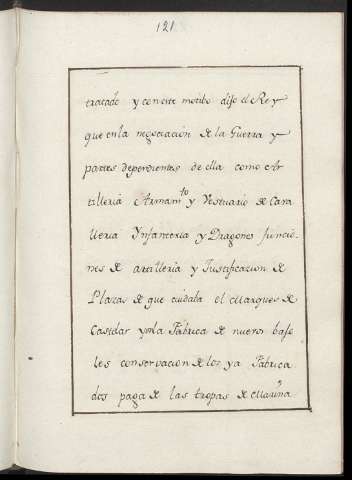 121
tratado y con este motibo dijo el Rey
que en la negociación de la Guerra y
partes dependientes de ella como Ar
tilleria Armam.to y Vestuario de Cava
lleria Ynfanteria y Dragones funcio
nes de artilleria y Justificacion de
Plazas de que cuidaba el Marques de
Castelar y en la Fabrica de nueros baje
les conservacion de los ya Fabrica
dos paga de las tropas de Marina